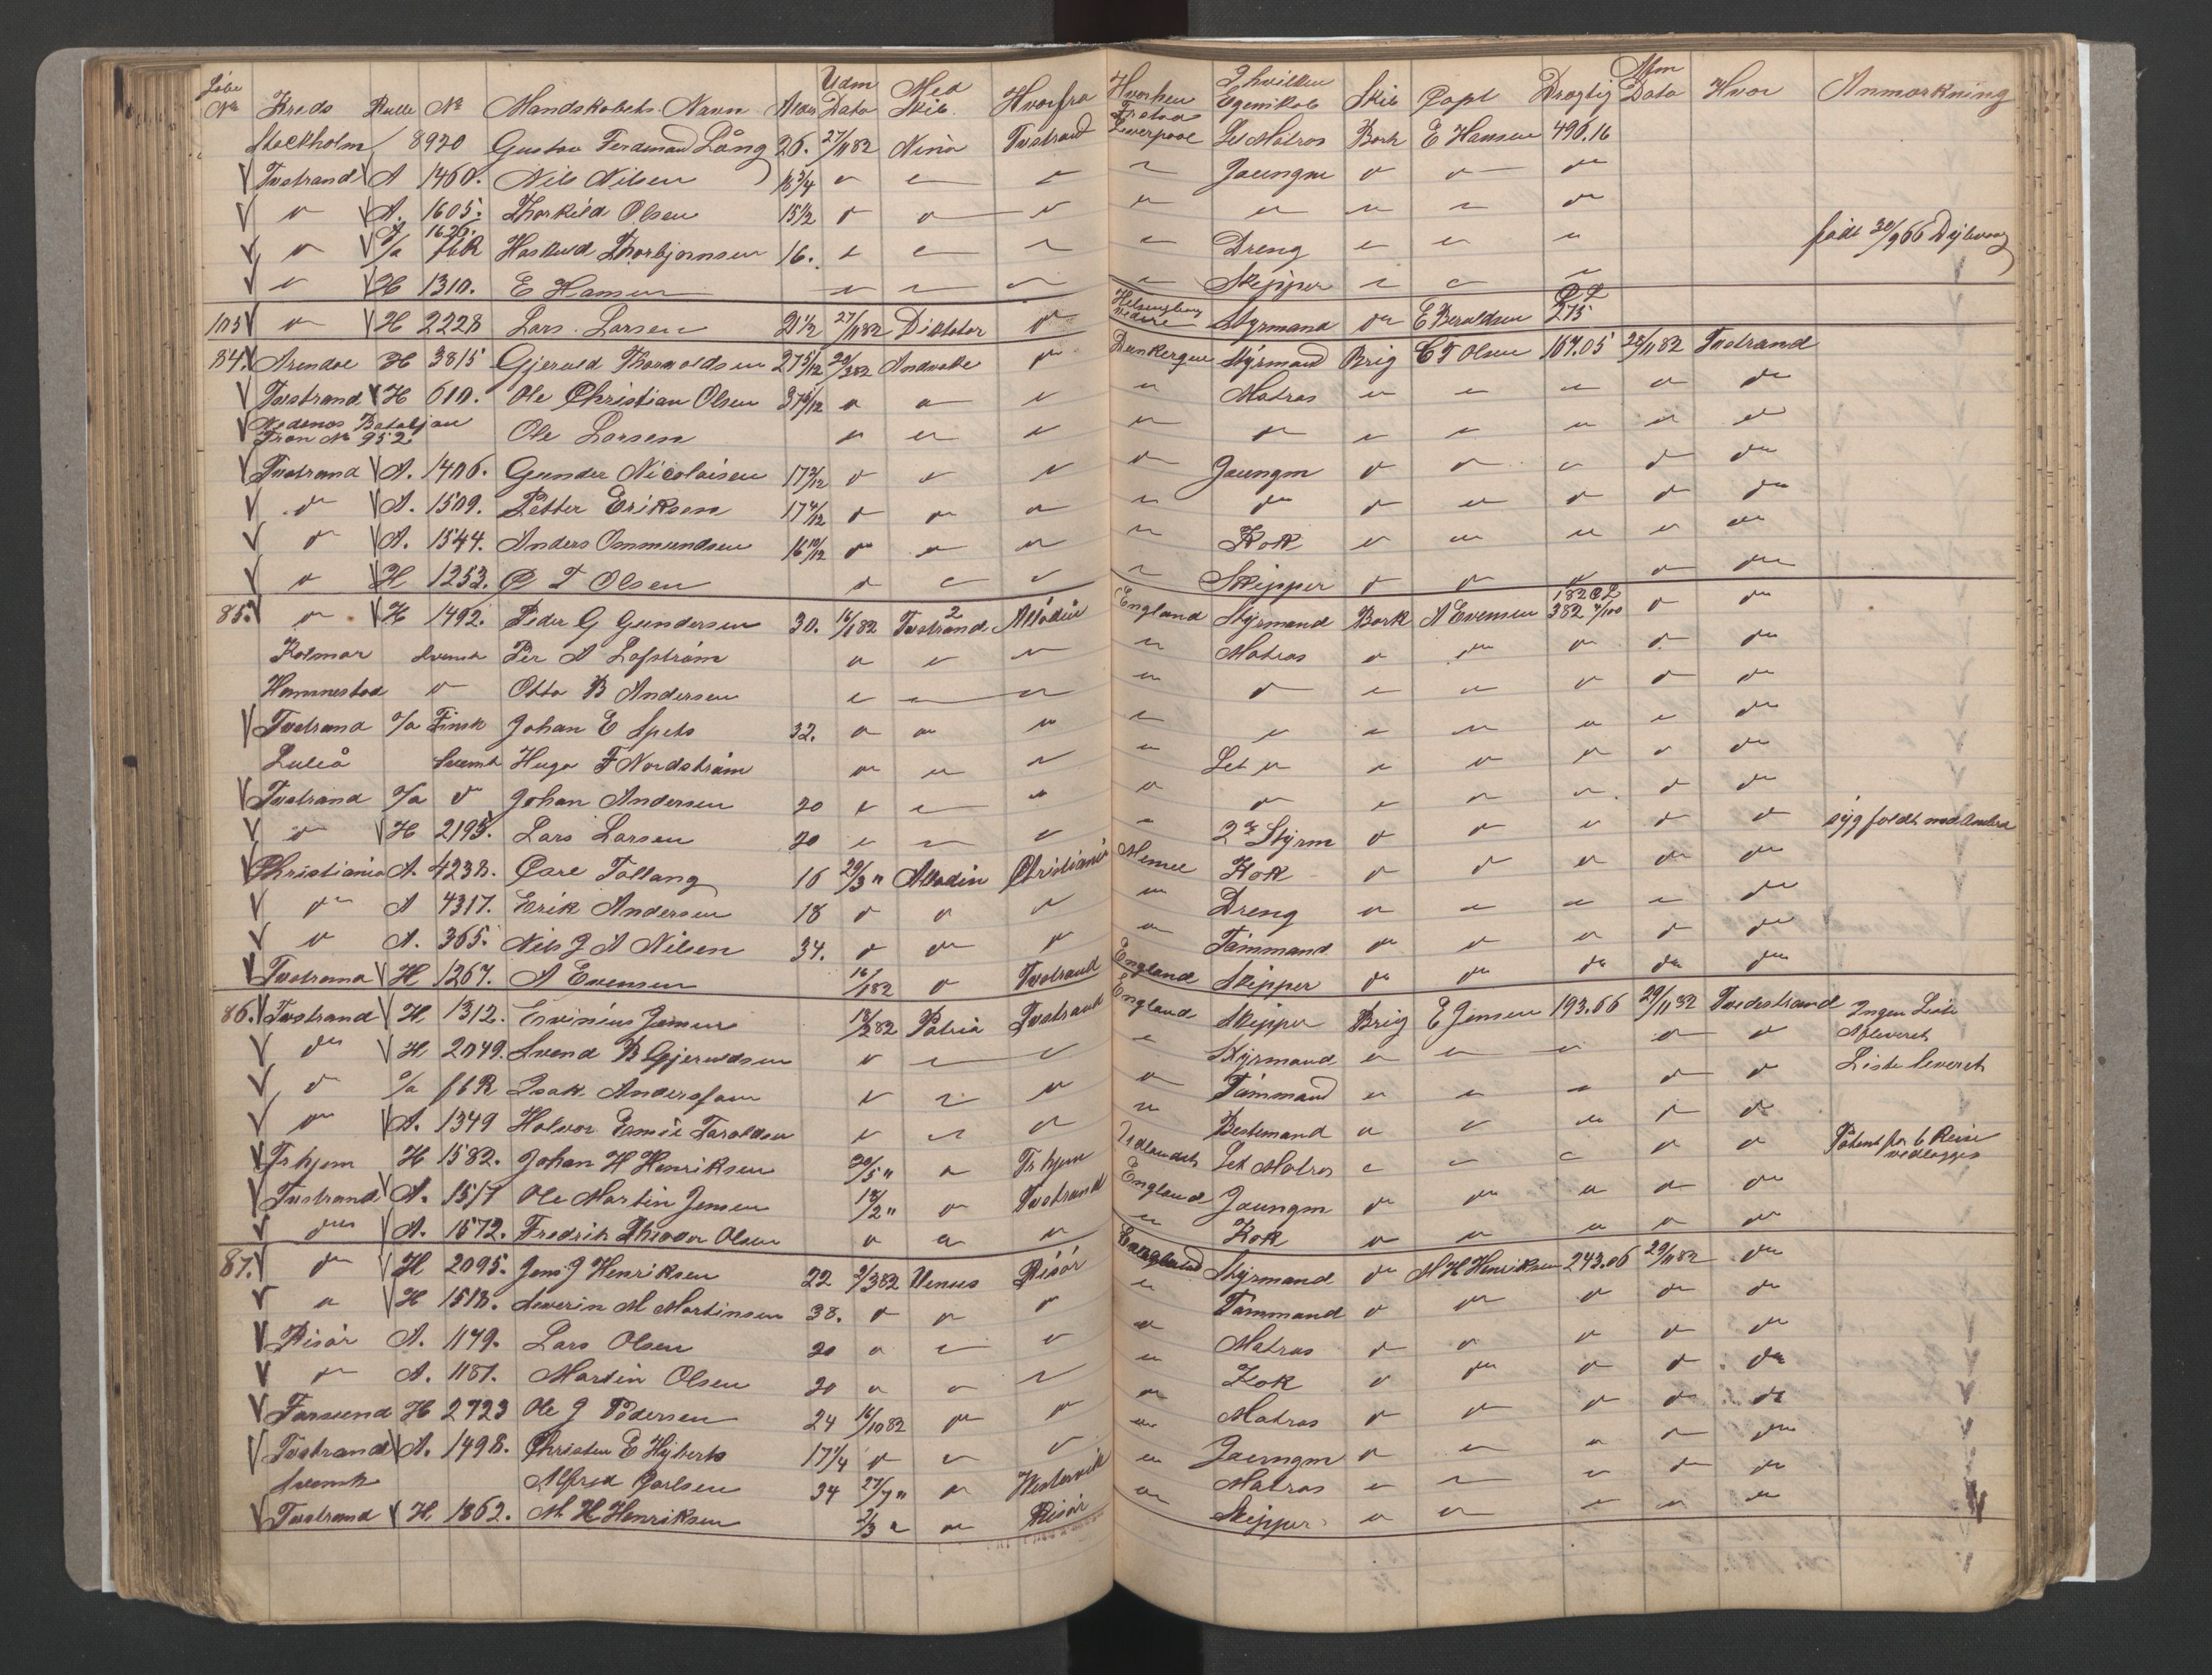 Løbe No Kreds Rulle No Mandskabets Navn Alder Udm Dato Med Skib Hvorfra Hvorhen I hvilken Egenskab Skib Capt Drægtig Afm Dato Hvor Anmærkning
Stockholm 8920 Gustav Ferdinand Lång 26. 27/1182 Nina Tvstrand Liverpool Let Matros Bark E Hansen 490.16
Tvstrand A 1460. Nils Nilsen 18 3/4 " " " " Jaungm " " "
" A. 1605. Thorkild Olsen 15 1/2 " " " " " " " "
" A 1626. o/a fbR Haslund Thorbjørnsen 16. " " " " Dreng " " " født 30/9 66 Dybvaag
" H 1310. E Hansen " " " " Skipper " " "
103 " H 2228 Lars Larsen 21 1/2 27/1182 Diktator " Helsingborg Styrmand " E Beraldsen CL 275
84. Arendal H 3815 Gjeruld Thorvaldsen 27 5/12 20/382 Andvake " Dunkerque Styrmand Brig C T Olsen 167.05 28/1182 Tvstrand
Tvstrand H 610. Ole Christian Olsen 37 5/12 " " " " Matros " " " " "
Nedenes Bataljon
Fran No 952 Ole Larsen " " " " " " " " " "
Tvstrand A. 1406. Gunder Nicolaisen 17 2/12 " " " " Jaungm " " " " "
" A. 1509. Petter Eriksen 17 4/12 " " " " " " " " " "
" A. 1544. Anders Ommundsen 16 10/12 " " " " Kok " " " " "
" H 1253. C T Olsen " " " " Skipper " " " " "
85. " H 1492. Peder G Gundersen 30. 16/182 Tvstrand Alladin England Styrmand Bark A Evensen 182 CL 382 4/100 " "
Kalmar Svensk Per A Løfstrøm " " " " Matros " " " " "
Hamnestad " Otto B Andersen " " " " " " " " " "
Tvstrand o/a Finsk Johan E Spets 32. " " " " " " " " " "
Luleå Svensk Hugo F Nordstrøm " " " " Let " " " " " "
Tvstrand o/a " Johan Andersen 20 " " " " " " " " " "
" H 2195. Lars Larsen 20 " " " " 2n Styrm " " " " "
Christiania A. 4238. Carl Tallang 16 20/3 " Alladin Christiania Memel Kok " " " " "
" A 4317. Erik Andersen 18 " " " " Dreng " " " " "
" A. 365. Nils J A Nilsen 34. " " " " Tømmand " " " " "
Tvstrand H 1267. A Evensen 16/182 " Tvstrand England Skipper " " " " "
86. Tvstrand H 1312. Jensen 18/282 Patria Tvstrand England Skipper Brig E Jensen 193.66 29/1182 Tvedestrand Ingen Liste
" H 2049. Svend B Gjeruldsen " " " " Styrmand " " " " " Afleveret
" o/a fbR Isak Anderssson " " " " Tømmand " " " " " Liste leveret
" A. 1349 Halvor Emil Taraldsen " " " " Bestemand " " " " "
Trhjem H 1582. Johan H Henriksen 20/5 " " Trhjem Udlandet Let Matros " " " " " Patent for 6 Reise vedlægges
Tvstrand A. 1517 Ole Martin Jensen 18/2 " " Tvstrand England Jaungm " " " " "
" A. 1572. Fredrik Thiodor Olsen " " " " Kok " " " " "
87. " H 2095. Jens J Henriksen 22 2/382 Venus Risør England Styrmand " M H Henriksen 243.06 29/1182 "
" H 1518. Severin M Martinsen 38. " " " " Tømmand " " " " "
Risør A. 1179. Lars Olsen 20 " " " " Matros " " " " "
" A. 1181. Martin Olsen 20 " " " " Kok " " " " "
Farsund H 2723 Ole J Pedersen 24 16/1082 " " " Matros " " " " "
Tvstrand A. 1498. Christen E Hyberts 17 1/4 " " " " Jaungm " " " " "
Svensk Alfred Carlsen 34 27/7 " " Westervik " Matros " " " " "
Tvstrand H 1862. M H Henriksen 2/3 " " Risør " Skipper " " " " "